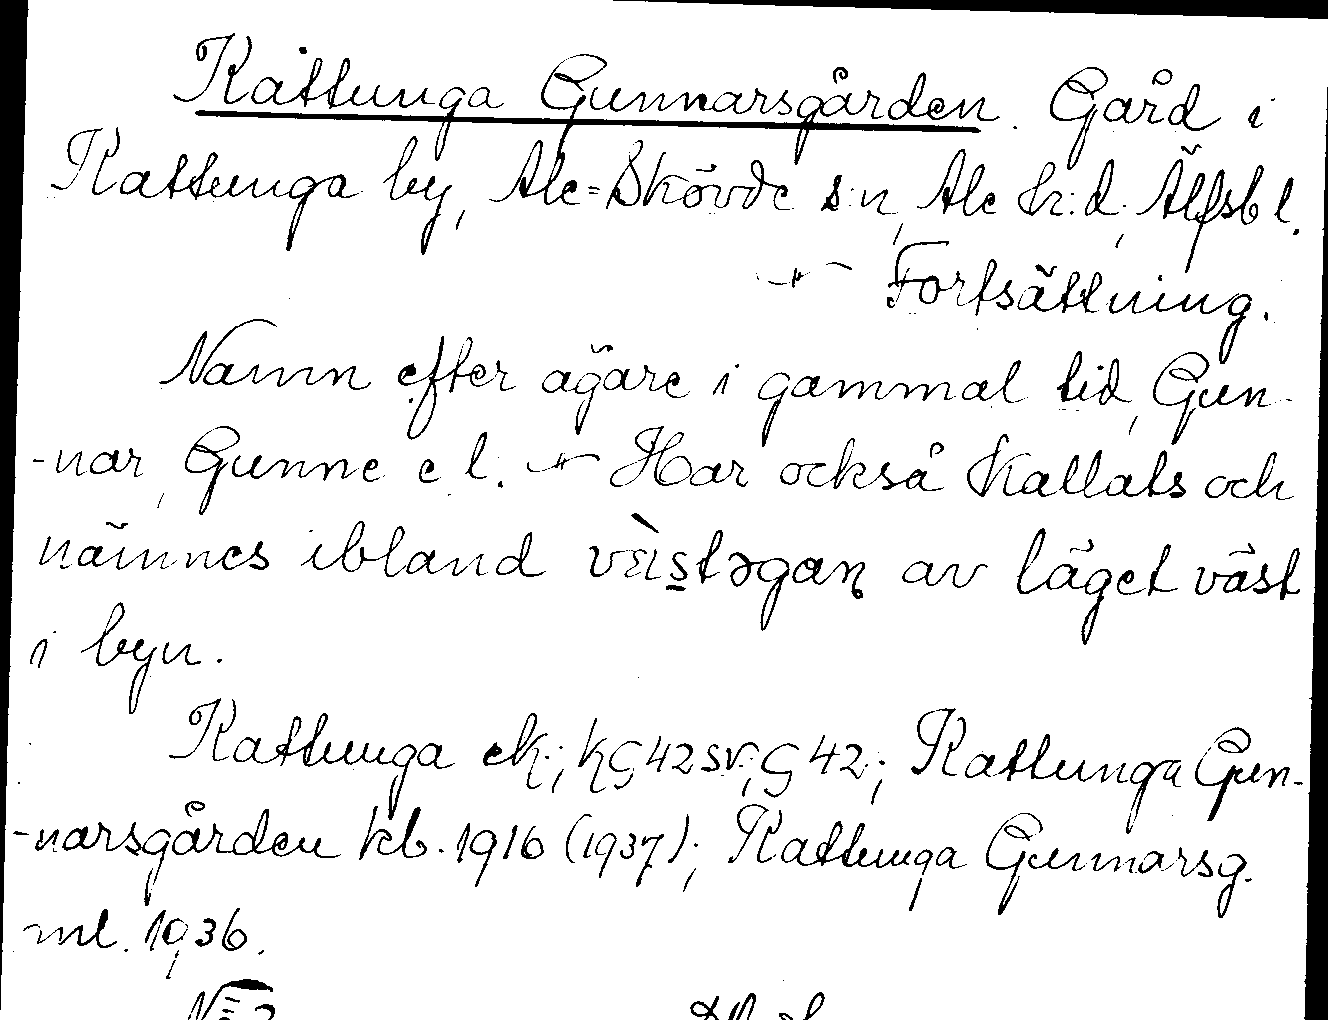 Kattunga Gunnarsgården. Gård i
Kattunga by, Ale=Skövde s:n, Ale h:d, Älfsb l.
Fortsättning.
Namn efter ägare i gammal tid, Gun-
-nar, Gunne e l. Har också kallats och
nämnes ibland vä̀istəgaɳ av läget väst
i byn.
Kattunga ek; 42 SV; 42; Kattunga Gun-
-narsgården kb. 1916 (1937); Kattunga Gunnarsg.
ml. 1936.